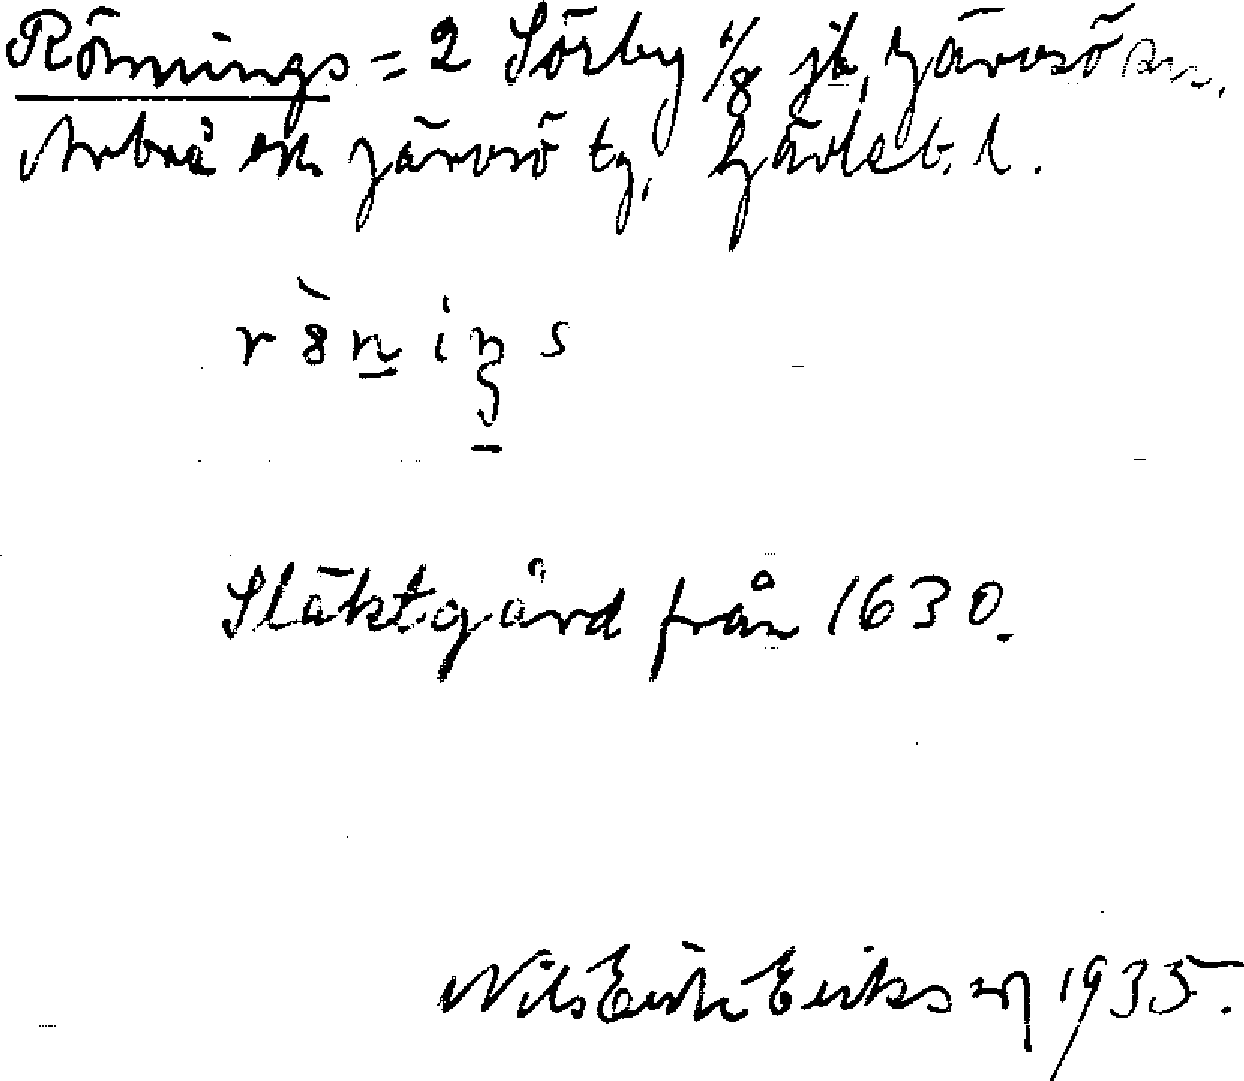 Rönnings = 2 Sörby 1/8 jb, Järvsö sn.
Arbrå och Järvsö tg, Gävleb. l.
rö̀niŋs
Släktgård från 1630.
Nils Erik Eriksson 1935.